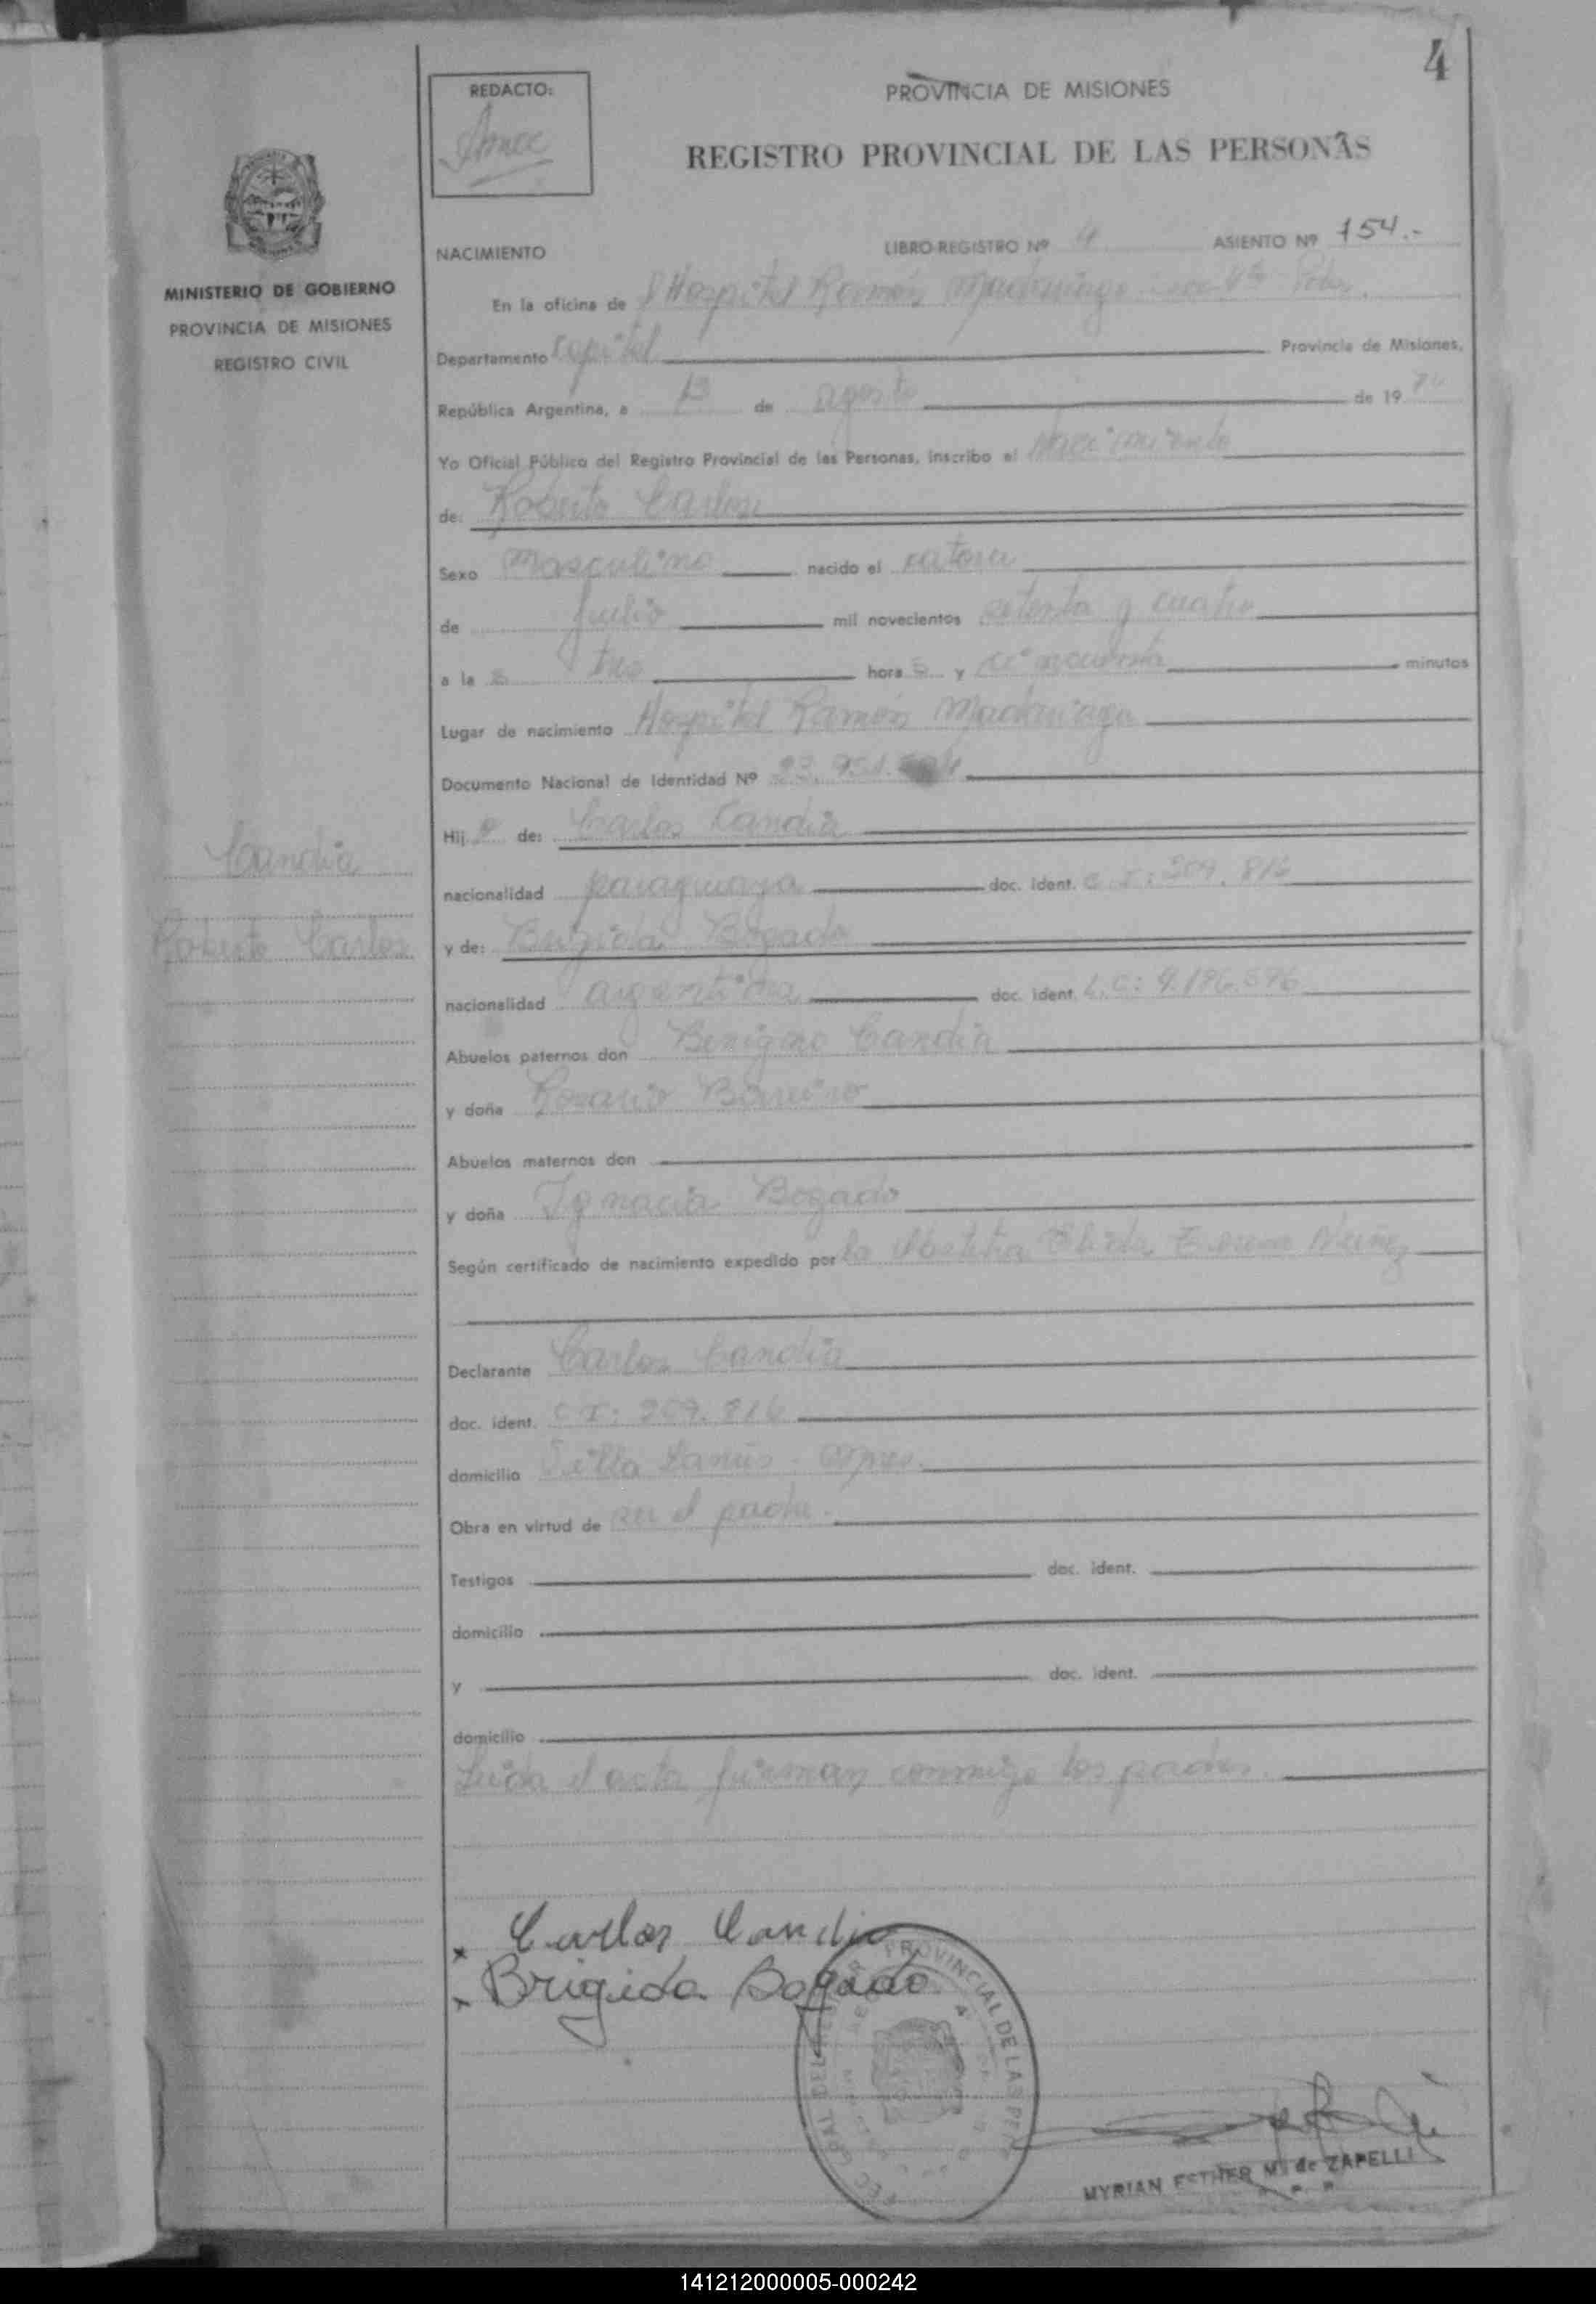 4
REDACTO:
PROVINCIA DE MISIONES
REGISTRO PROVINCIAL DE LAS PERSONAS
MINISTERIO DE GOBIERNO
PROVINCIA DE MISIONES
REGISTRO CIVIL
NACIMIENTO LIBRO-REGISTRO Nº 4 ASIENTO Nº 154.-
En la oficina de l Hospital Ramón Madariaga
Departamento Capital Provincia de Misiones,
República Argentina, a 13 de agosto de 19 74
Yo Oficial Público del Registro Provincial de las Personas, inscribo el Nacimiento
de: Roberto Carlos
Sexo Masculino nacido el catorce
de Julio mil novecientos setenta y cuatro
a la s tres hora s y cincuenta minutos
Lugar de nacimiento Hospital Ramón Madariaga
Documento Nacional de Identidad Nº
Hij o de: Carlos Candia
nacionalidad paraguaya doc. ident. C.I: 209.816
Candia
Roberto Carlos
y de: Brígida Bogado
nacionalidad argentina doc. ident. L.C: 4.186.596
Abuelos paternos don Benigno Candia
y doña Rosario Barreiro
Abuelos maternos don
y doña Ignacia Bogado
Según certificado de nacimiento expedido por la Obstetra Núñez
Declarante Carlos Candia
doc. ident. C.I: 209.816
domicilio Villa Lanús
Obra en virtud de ser el padre.
Testigos doc. ident.
domicilio
y doc. ident.
domicilio
Leida el acta firman conmigo los padres.
x Carlos Candia
x Brigida Bogado
PROVINCIAL DE LAS PER
MYRIAN ESTHER M. de ZAPELLI
141212000005-000242